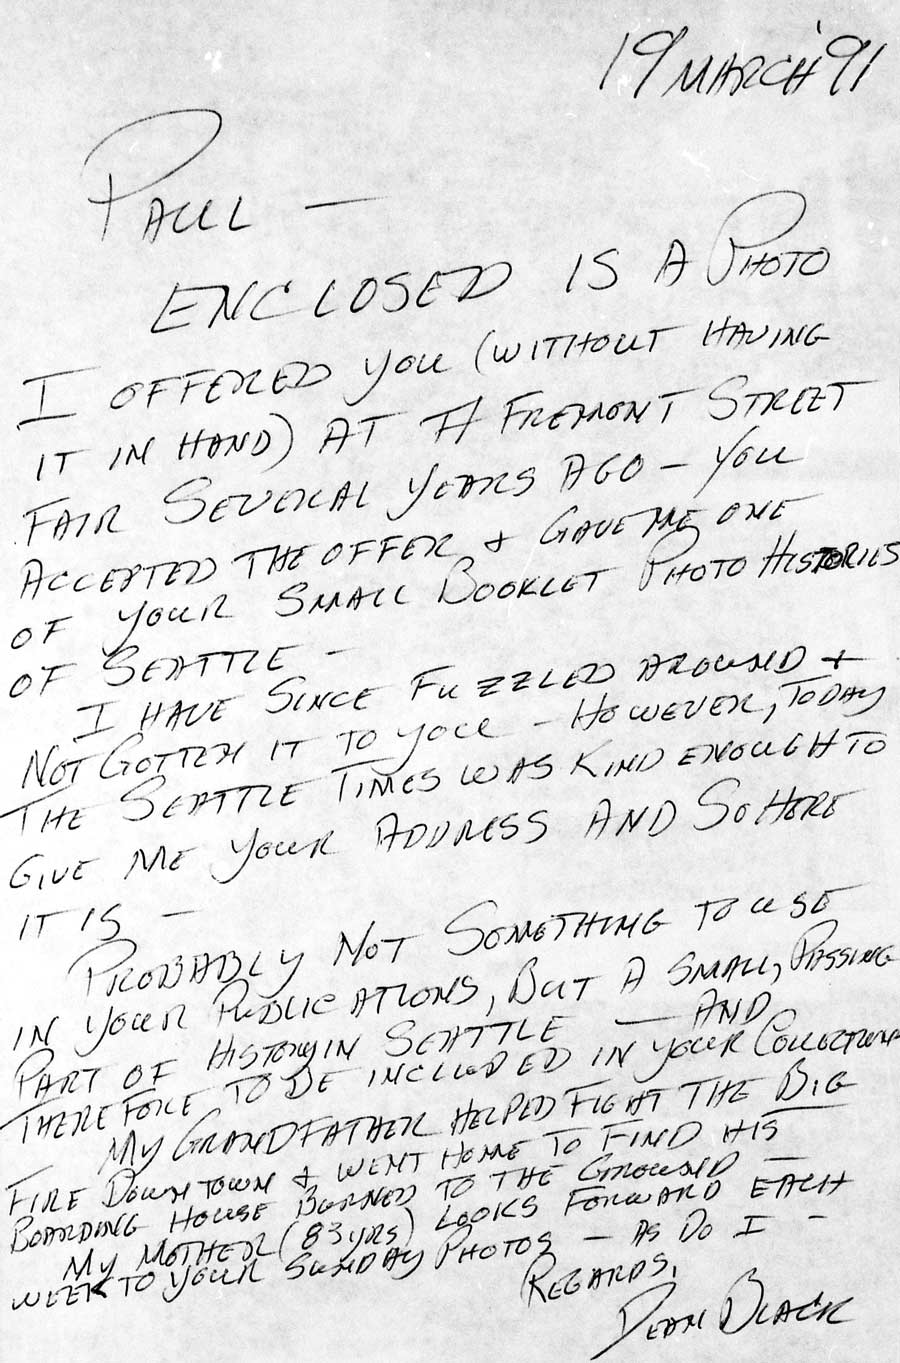 19 MARCH '91
PAUL —
ENCLOSED IS A PHOTO
I OFFERED YOU (WITHOUT HAVING
IT IN HAND) AT A FREMONT STREET
FAIR SEVERAL YEARS AGO — YOU
ACCEPTED THE OFFER & GAVE ME ONE
OF YOUR SMALL BOOKLET PHOTO HISTORIES
OF SEATTLE —
I HAVE SINCE FUZZLED AROUND &
NOT GOTTEN IT TO YOU — HOWEVER, TODAY
THE SEATTLE TIMES WAS KIND ENOUGH TO
GIVE ME YOUR ADDRESS AND SO HERE
IT IS —
PROBABLY NOT SOMETHING TO USE
IN YOUR PUBLICATIONS, BUT A SMALL, PASSING
PART OF HISTORY IN SEATTLE — AND
THEREFORE TO BE INCLUDED IN YOUR COLLECTION
MY GRANDFATHER HELPED FIGHT THE BIG
FIRE DOWNTOWN & WENT HOME TO FIND HIS
BOARDING HOUSE BURNED TO THE GROUND —
MY MOTHER (83 YRS) LOOKS FORWARD EACH
WEEK TO YOUR SUNDAY PHOTOS — AS DO I —
REGARDS,
DEAN BLACK